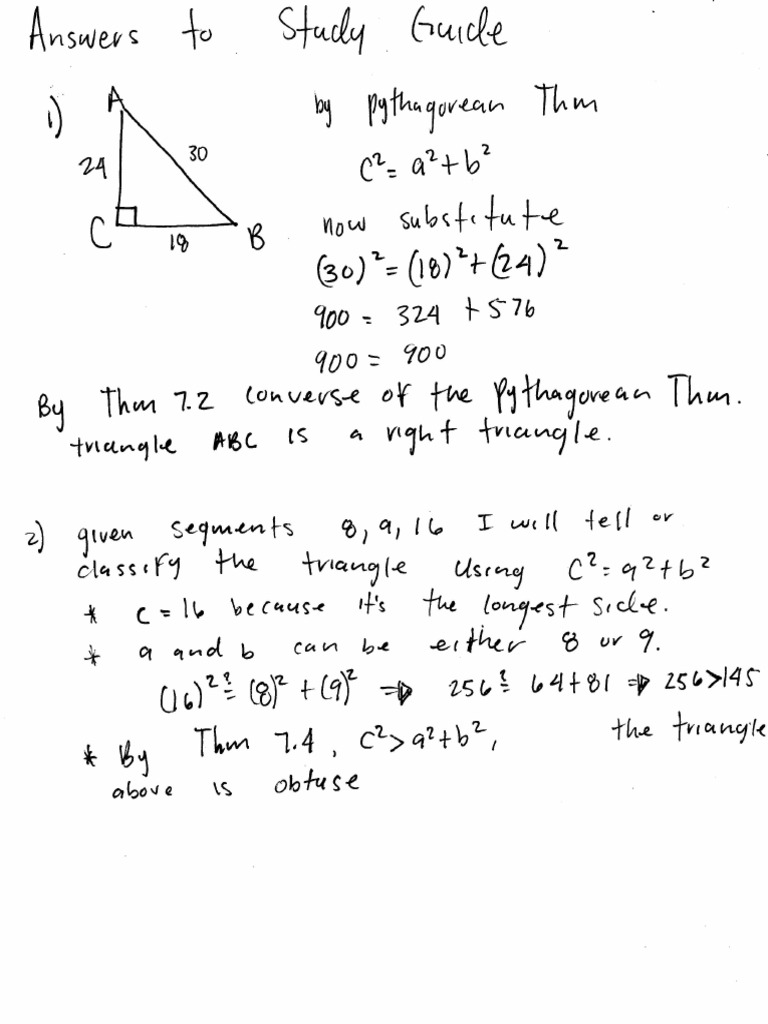 Answers to Study Guide
1)
A
24
30
C
18
B
by pythagorean Thm
c² = a² + b²
now substitute
(30)² = (18)² + (24)²
900 = 324 + 576
900 = 900
By Thm 7.2 converse of the Pythagorean Thm.
triangle ABC is a right triangle.
2) given segments 8, 9, 16 I will tell or
classify the triangle using c² = a² + b²
* c = 16 because it's the longest side.
* a and b can be either 8 or 9.
(16)² ≟ (8)² + (9)² ⇒ 256 ≟ 64 + 81 ⇒ 256 > 145
* By Thm 7.4, c² > a² + b², the triangle
above is obtuse